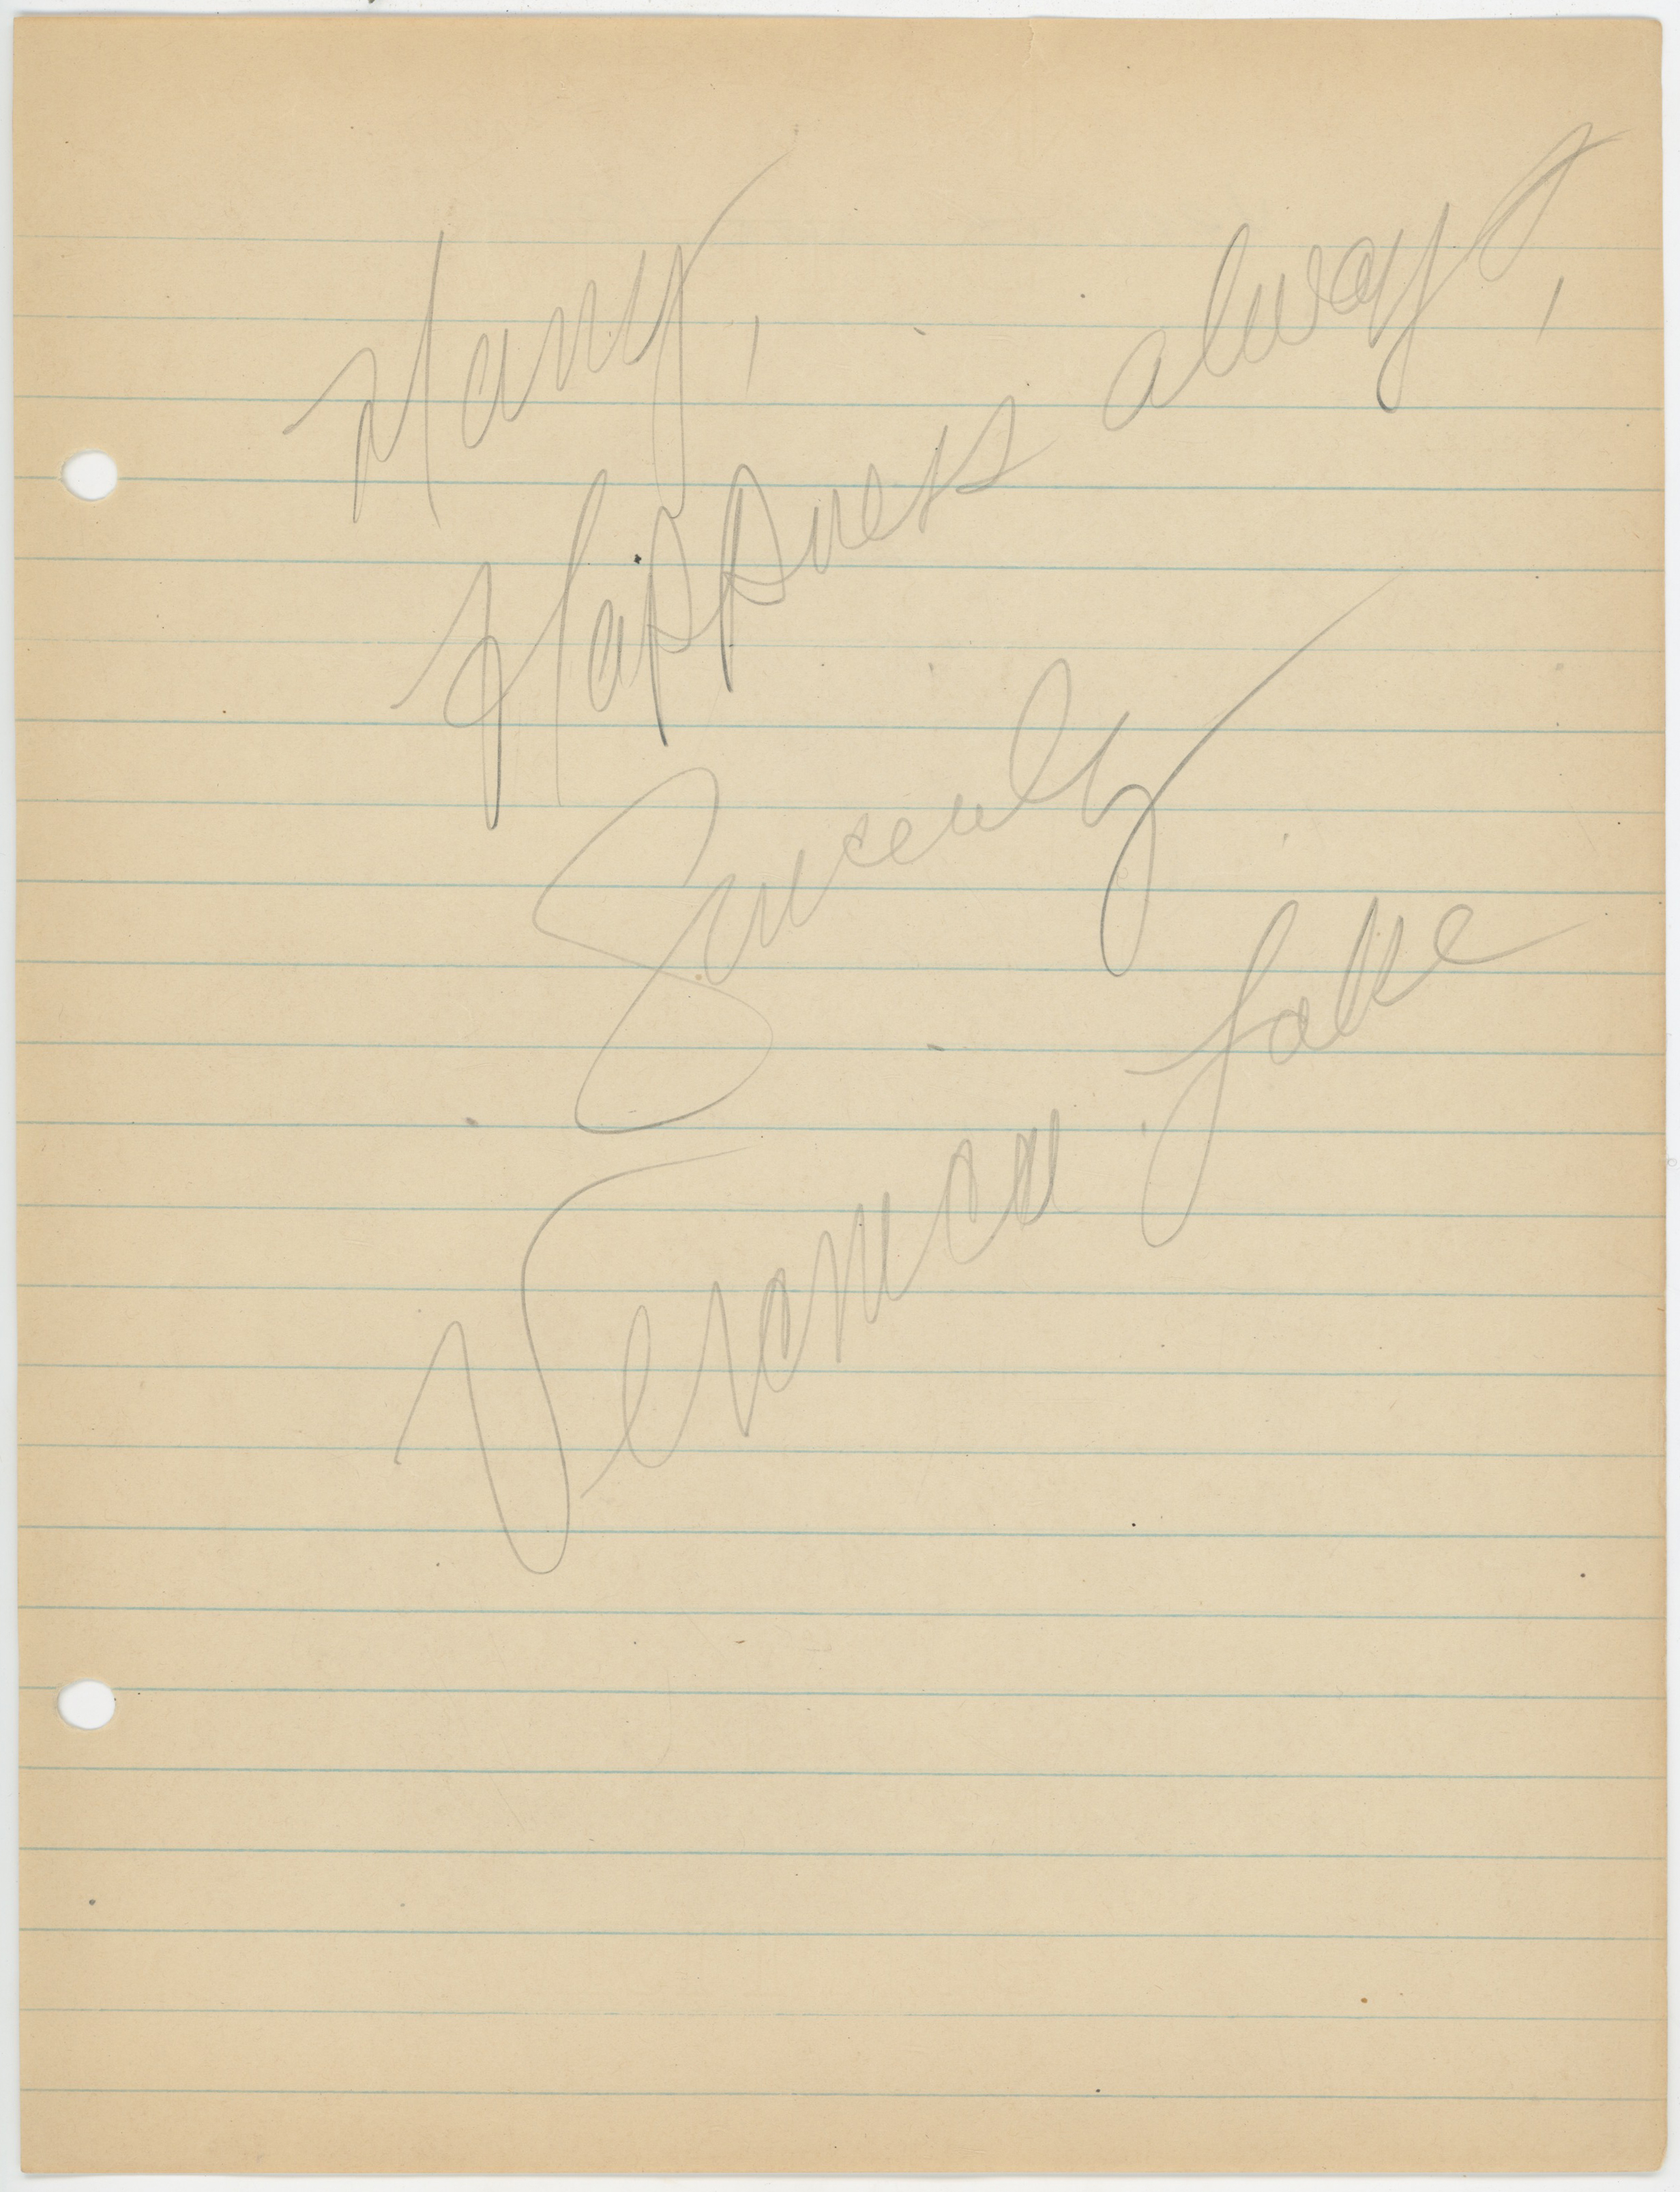 Harry,
Happiness always,
Sincerely
Veronica Lake